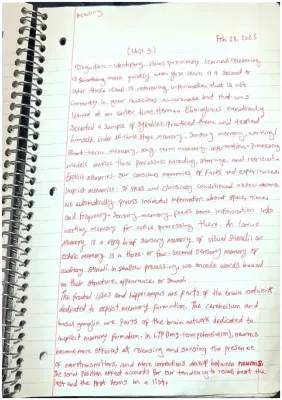 Reading
Feb 28, 2023
(Unit 5)
Recognition - identifying items previously learned. Relearning
is something more quickly when you learn it a second or
later time. Recall is retrieving information that is not
currently in your conscious awareness but that was
learned at an earlier time. Hermann Ebbinghaus randomly
selected a sample of syllables, practiced them, and tested
himself. Order of three stage memory. Sensory memory, working/
short-term memory, long-term memory. Information-processing
models involve three processes: encoding, storage, and retrieval.
Explicit memories: our conscious memories of facts and experiences.
Implicit memories: of skills and classically conditioned associations.
We automatically process incidental information about space, time,
and frequency. Sensory memory feeds some information into
working memory for active processing there. An iconic
memory is a very brief sensory memory of visual stimuli; an
echoic memory is a three- or four-second sensory memory of
auditory stimuli. In shallow processing, we encode words based
on their structure, appearance or sound.
The frontal lobes and hippocampus are parts of the brain network
dedicated to explicit memory formation. The cerebellum and
basal ganglia are parts of the brain network dedicated to
implicit memory formation. In LTP (long-term potentiation), neurons
become more efficient at releasing and sensing the presence
of neurotransmitters, and more connections develop between neurons.
The serial position effect accounts for our tendency to recall best the
last and the first items in a list.